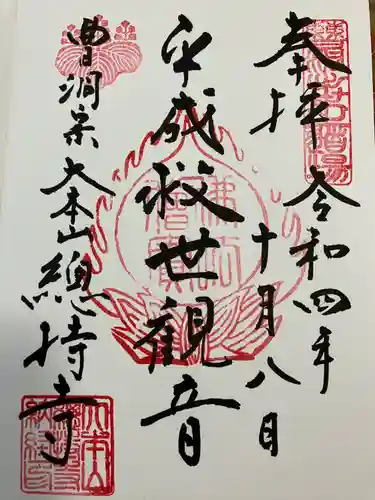 奉拝 令和四年
十月八日
平成救世観音
曹洞宗 大本山 總持寺